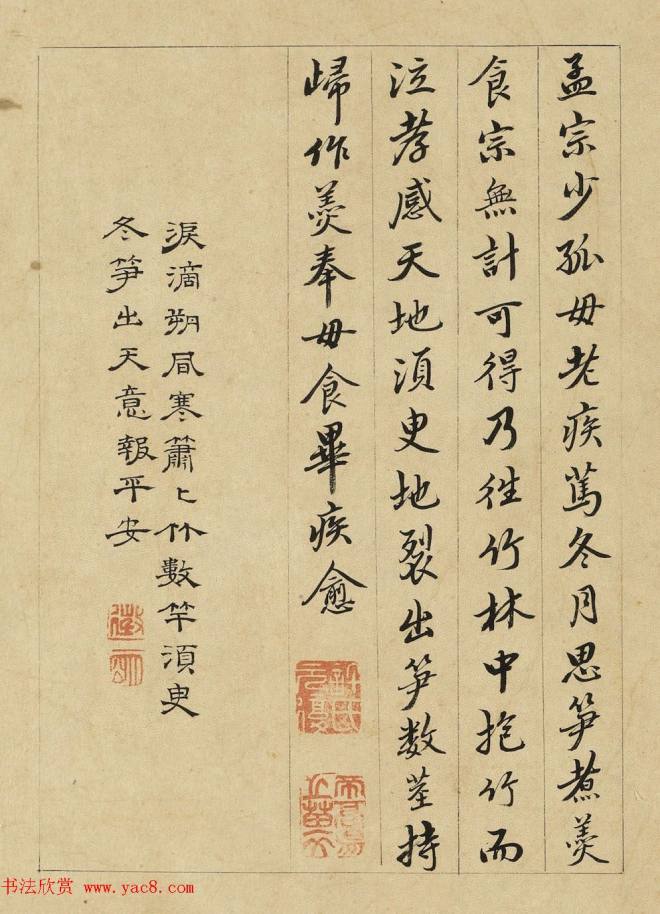 孟宗少孤母老疾篤冬月思笋煮羹
食宗無計可得乃往竹林中抱竹而
泣孝感天地湏臾地裂出笋数莖持
歸作羹奉母食畢疾愈
淚滴朔風寒簫〻竹數竿湏臾
冬笋出天意報平安
徵明
书法欣赏 www.yac8.com